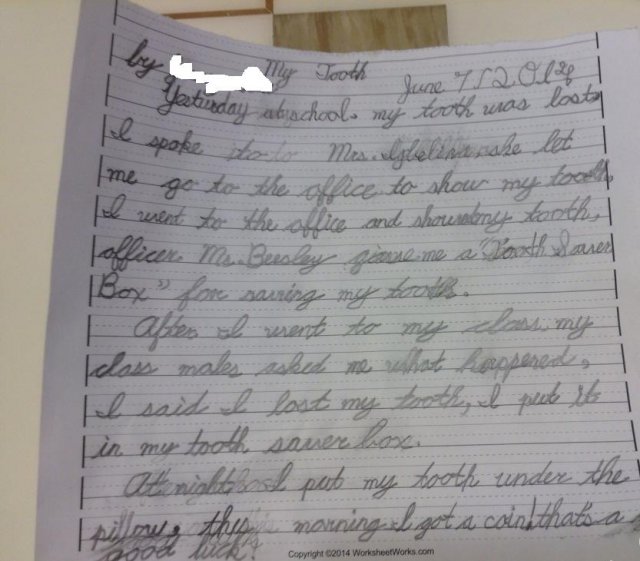 by My Tooth June 7 / 2014
Yesturday at school. my tooth was lost
I spoke to Mrs. she let
me go to the office to show my tooth,
I went to the office and showed my tooth,
officer. Ms. Beesley gave me a "Tooth Saver
Box" for saving my tooth.
After I went to my class, my
class mates asked me what happened,
I said I lost my tooth, I put it
in my tooth saver box.
At night I put my tooth under the
pillow, this morning I got a coin! thats a
good luck!
Copyright ©2014 WorksheetWorks.com